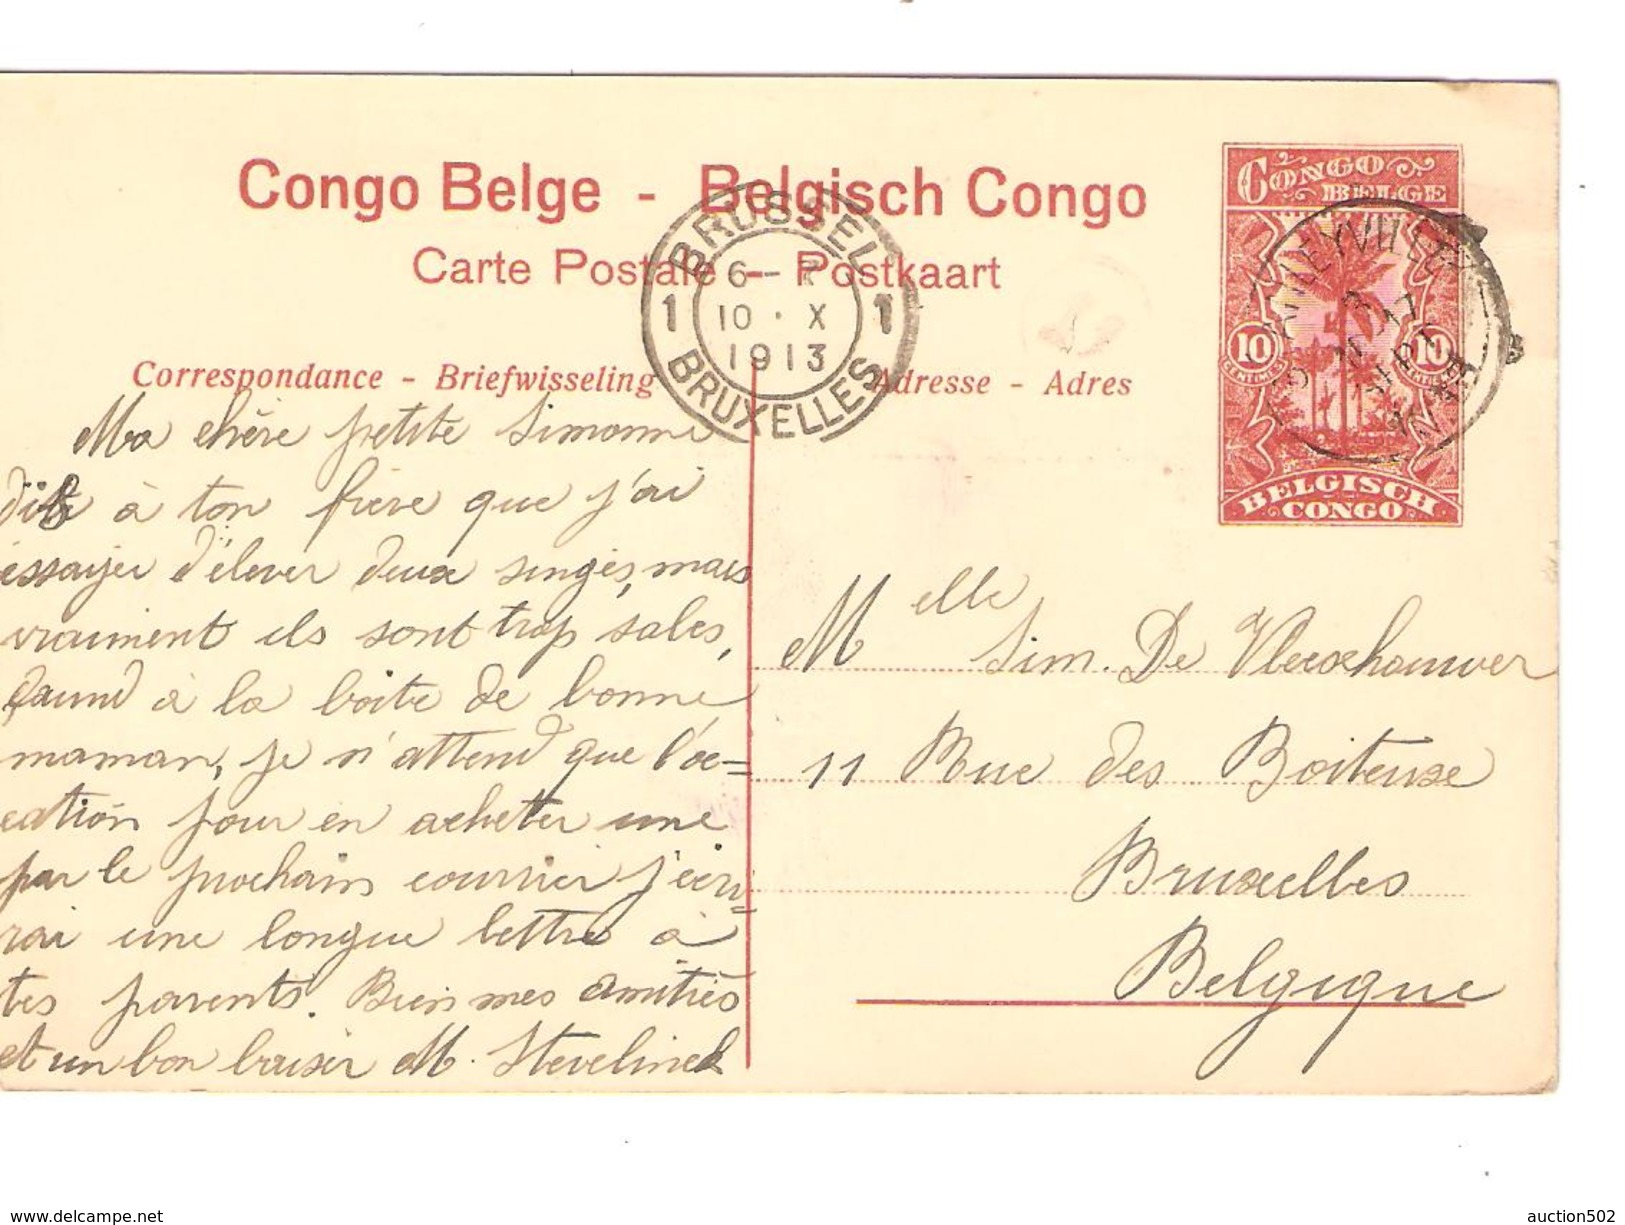 Congo Belge - Belgisch Congo
Carte Postale - Postkaart
Correspondance - Briefwisseling
Adresse - Adres
BRUSSEL
6 - 7
10 · X
1913
1 1
BRUXELLES
CONGO
BELGE
10 10
CENTIMES
BELGISCH
CONGO
STANLEYVILLE
Ma chère petite Simonne
dis à ton frère que j'ai
essayer d'élever deux singes, mais
vraiment ils sont trop sales,
quand à la boite de bonne
maman, je n'attend que l'oc=
cation pour en acheter une
par le prochain courrier j'écri=
rai une longue lettre à
tes parents. Bien mes amitiès
et un bon baiser M. Stevelinck
Melle Sim. De Vleeschouwer
11 Rue des Boiteuse
Bruxelles
Belgique
delcampe.net
auction502